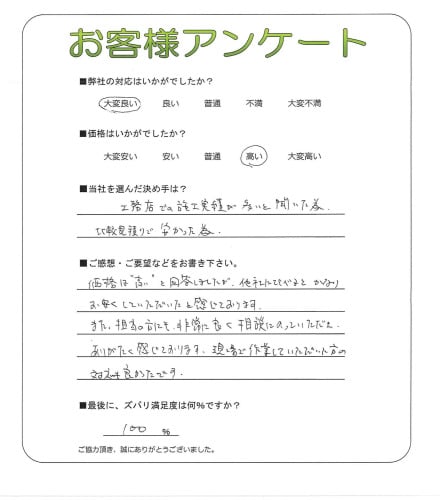 お客様アンケート
■弊社の対応はいかがでしたか？
大変良い 良い 普通 不満 大変不満
■価格はいかがでしたか？
大変安い 安い 普通 高い 大変高い
■当社を選んだ決め手は？
工務店での施工実績が多いと聞いた為.
比較見積りで安かった為.
■ご感想・ご要望などをお書き下さい。
価格は"高い"と回答しましたが、他社にくらべると かなり
お安くしていただいたと感じております.
また、担当の方にも非常に良く相談にのっていただき、
ありがたく感じております、現場で作業していただいた方の
対応も良かったです.
■最後に、ズバリ満足度は何％ですか？
100 %
ご協力頂き、誠にありがとうございました。